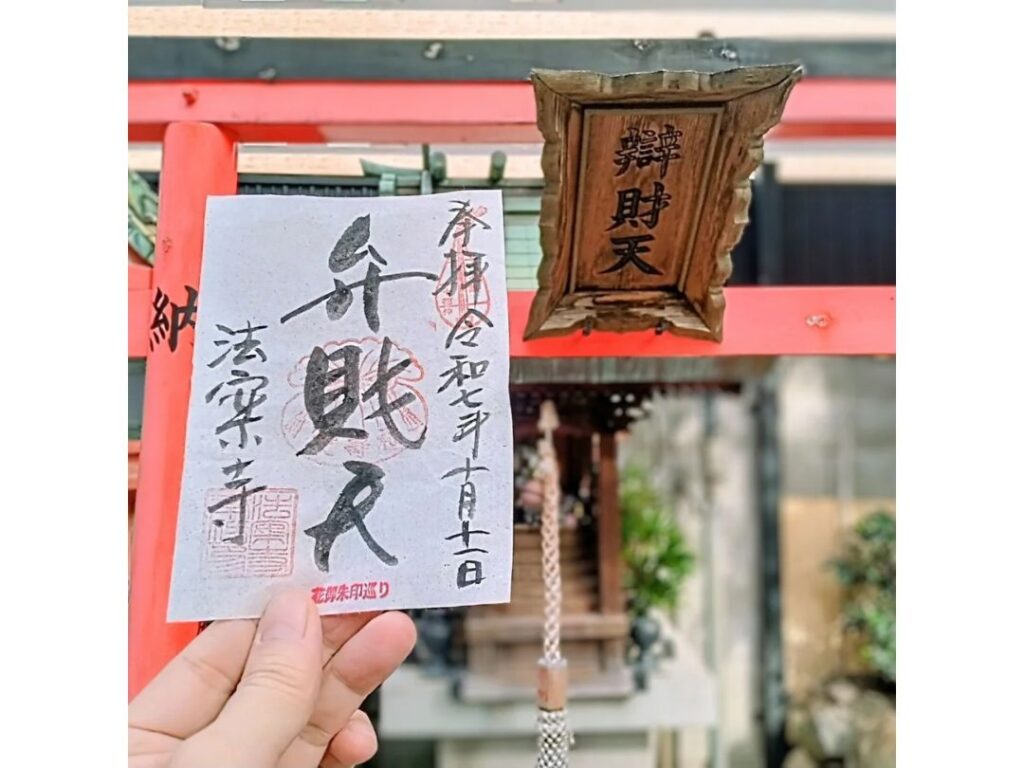 奉拝 令和七年十月十一日
弁財天
法案寺
花御朱印巡り
辯財天
納